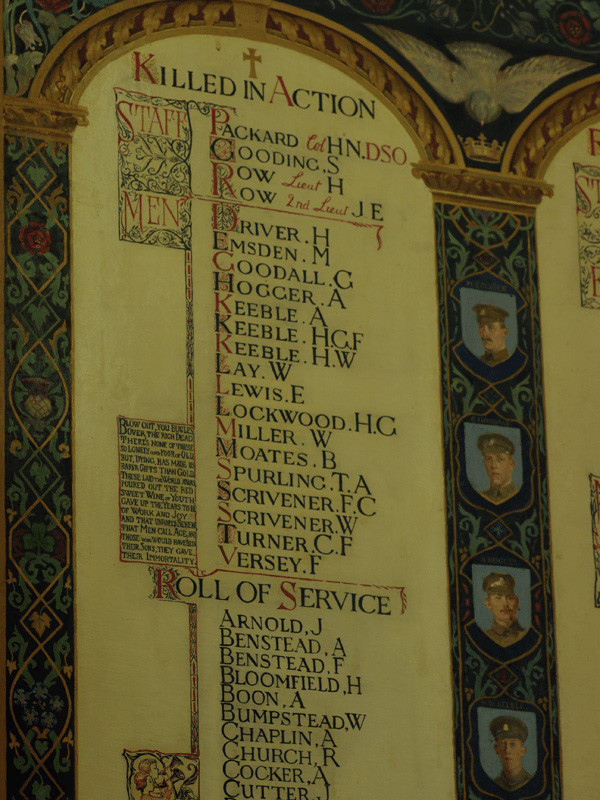 KILLED IN ACTION
STAFF
PACKARD Col H.N. DSO
GOODING. S
ROW Lieut H
ROW 2nd Lieut J E
MEN
DRIVER. H
EMSDEN. M
GOODALL. G
HOGGER. A
KEEBLE. A
KEEBLE. H.G.F
KEEBLE. H.W
LAY. W
LEWIS. E
LOCKWOOD. H.G
MILLER. W
MOATES. B
SPURLING. T. A
SCRIVENER. F. C
SCRIVENER. W
TURNER. C. F
VERSEY. F
BLOW OUT, YOU BUGLES
OVER THE RICH DEAD
THERE'S NONE OF THESE
SO LONELY AND POOR OF OLD
BUT, DYING, HAS MADE US
RARER GIFTS THAN GOLD
THESE LAID THE WORLD AWAY
POURED OUT THE RED
SWEET WINE OF YOUTH
GAVE UP THE YEARS TO BE
OF WORK AND JOY
AND THAT UNHOPED SERENE
THAT MEN CALL AGE, AND
THOSE WHO WOULD HAVE BEEN
THEIR SONS, THEY GAVE,
THEIR IMMORTALITY.
ROLL OF SERVICE
ARNOLD, J
BENSTEAD, A
BENSTEAD, F
BLOOMFIELD, H
BOON, A
BUMPSTEAD, W
CHAPLIN, A
CHURCH, R
COCKER, A
CUTTER, J